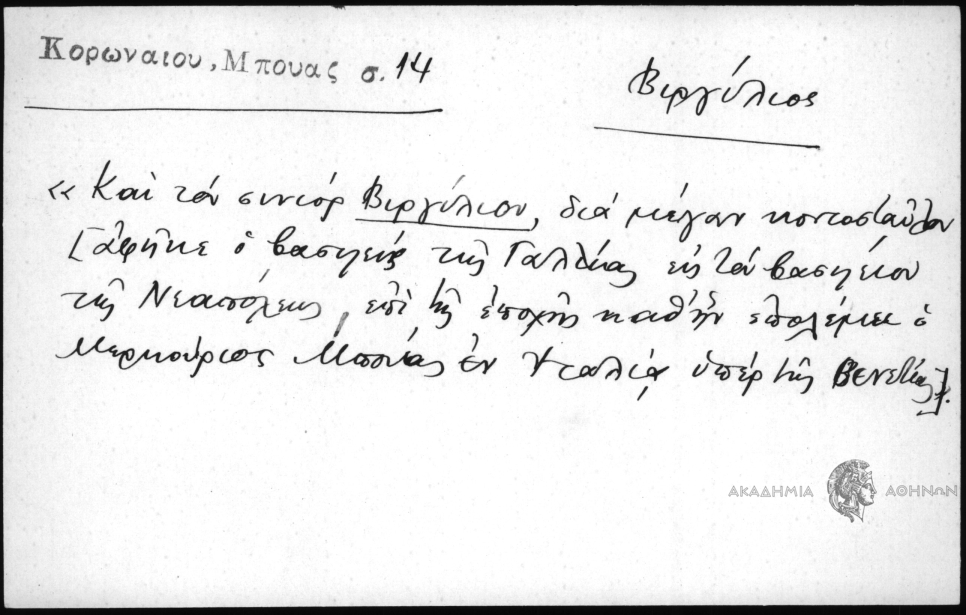 Κορωναιου, Μπουας σ. 14
Βιργύλιος
« Καὶ τὸν σινιὸρ Βιργύλιον, διά μέγαν κοντοσταῦλον
[ἀφῆκε ὁ βασιλεύς τῆς Γαλλίας εἰς τό βασίλειον
τῆς Νεαπόλεως, ἐπί τῆς ἐποχῆς καθ' ἥν ἐπολέμει ὁ
Μερκούριος Μπούας ἐν Ἰταλίᾳ ὑπέρ τῆς Βενετίας].
ΑΚΑΔΗΜΙΑ ΑΘΗΝΩΝ